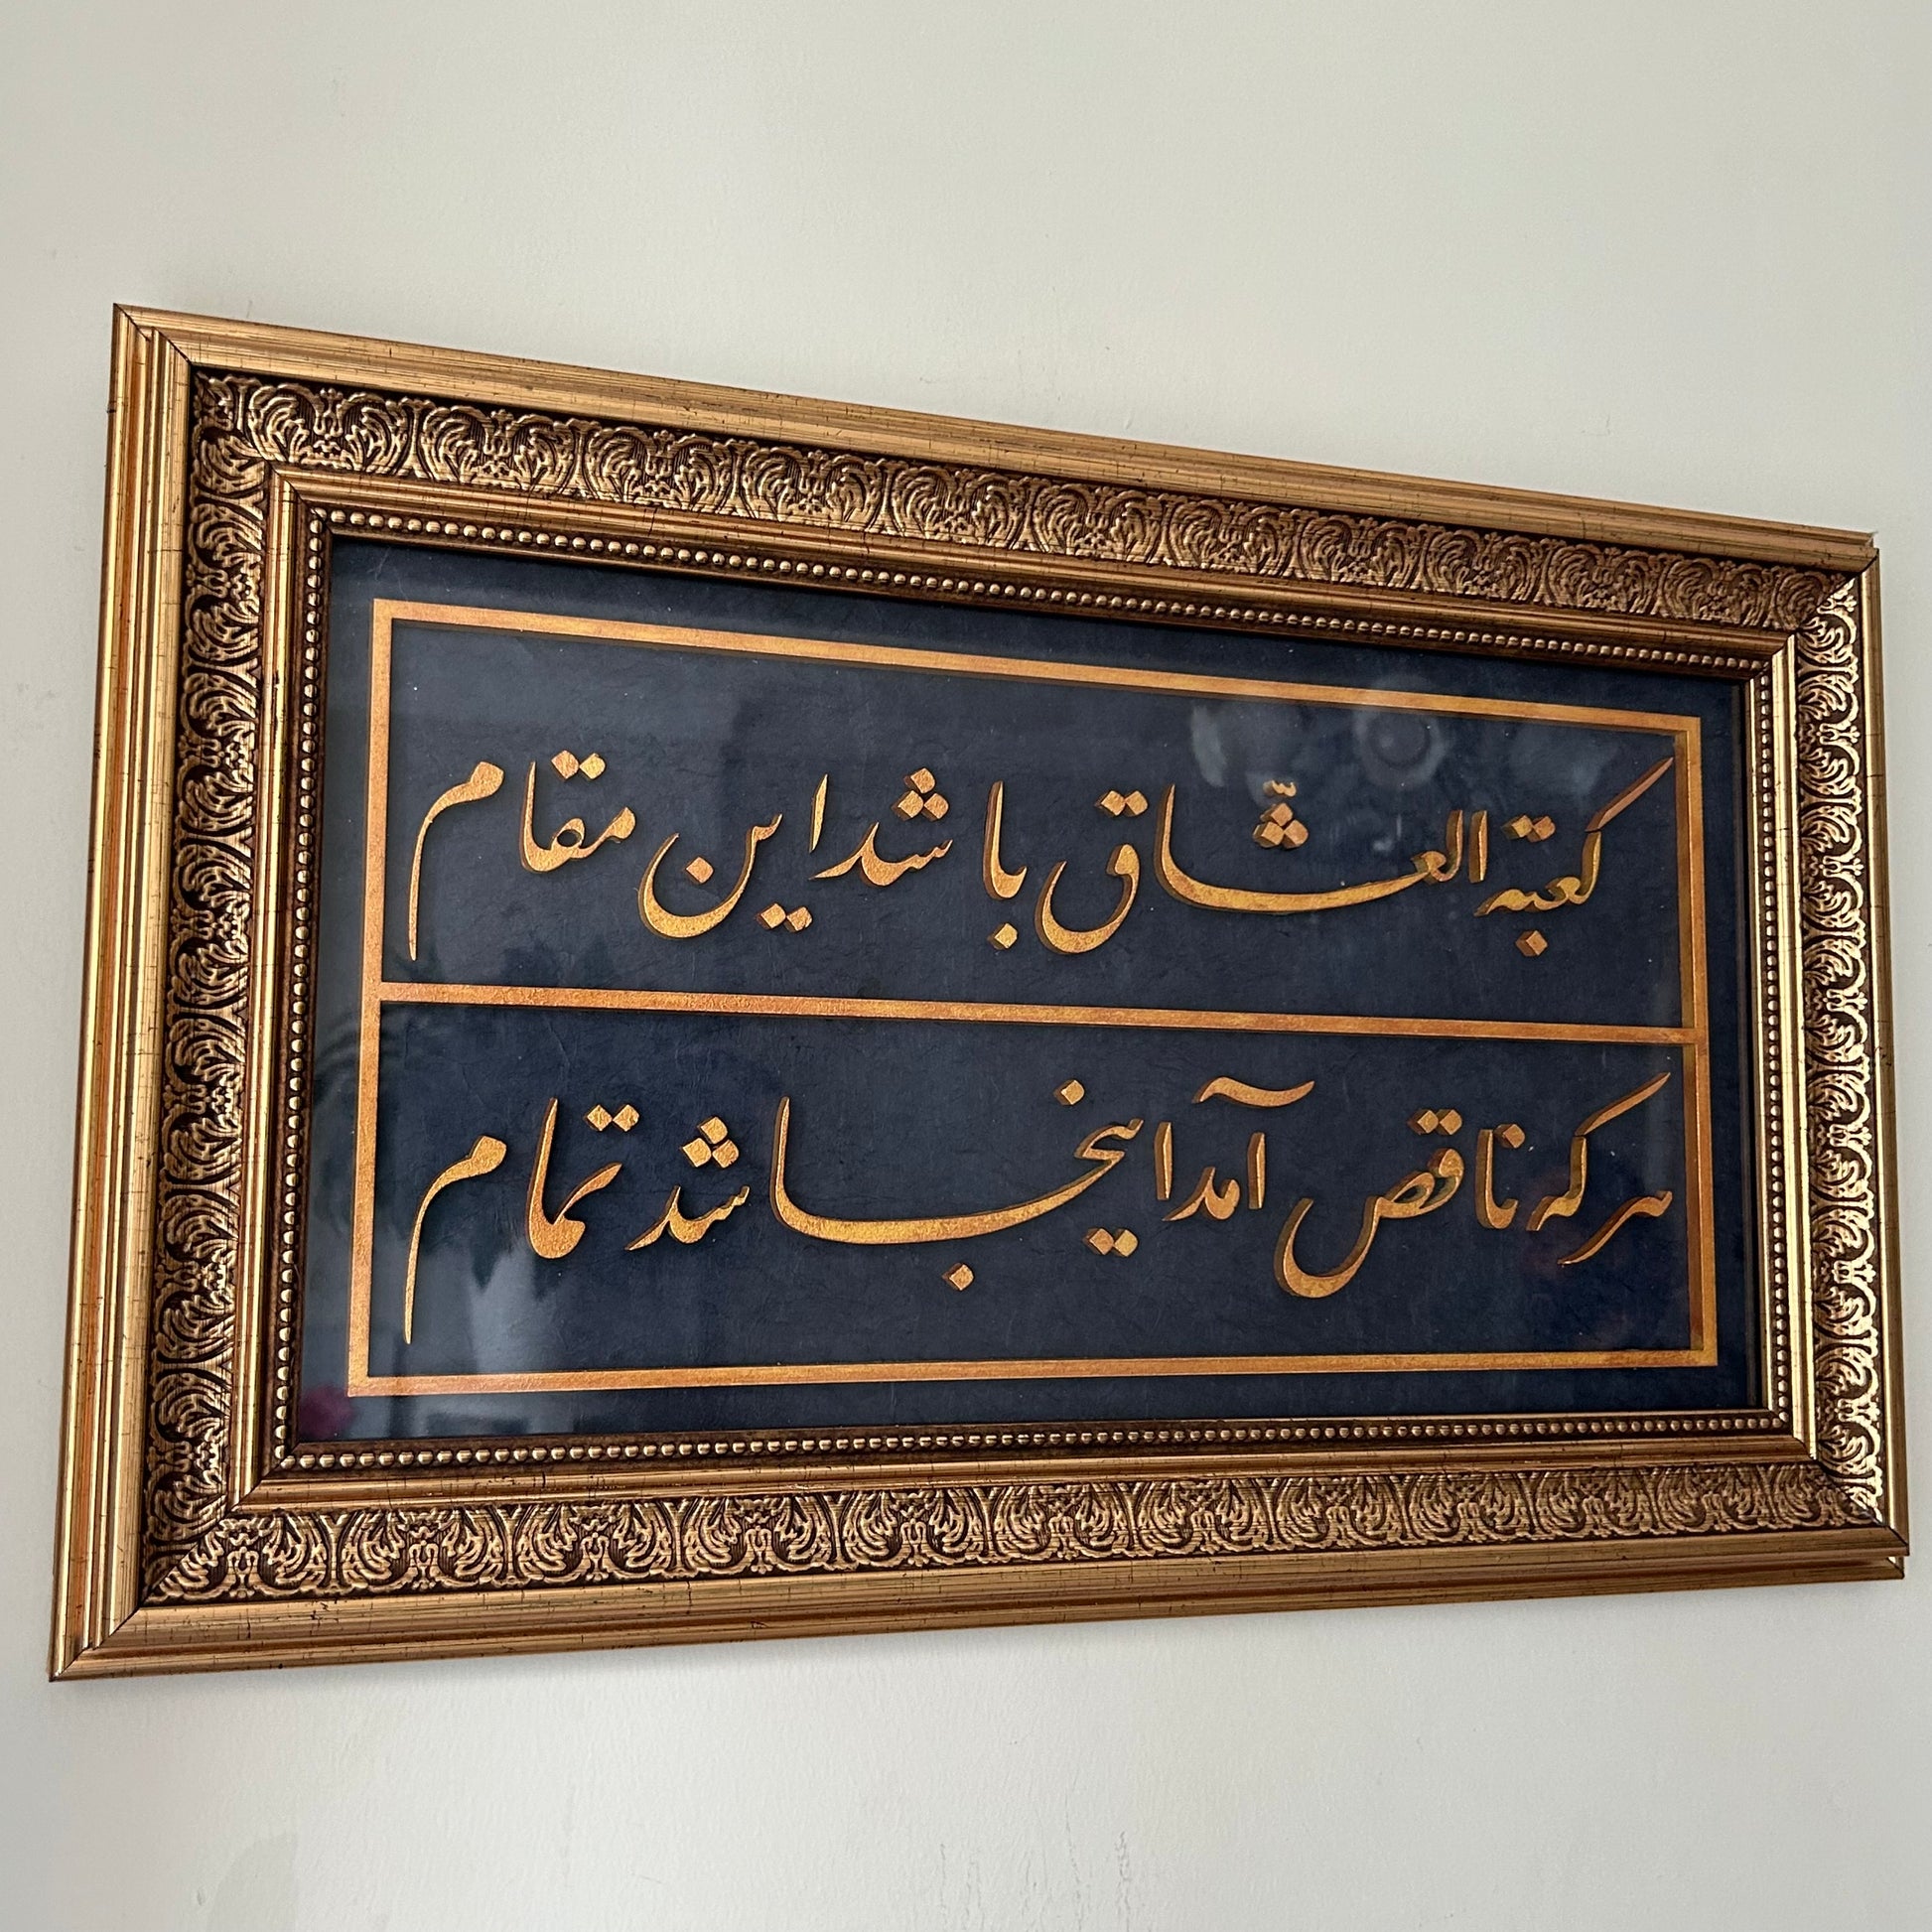 كعبة العشّاق باشد این مقام
هر که ناقص آمد اینجا شد تمام